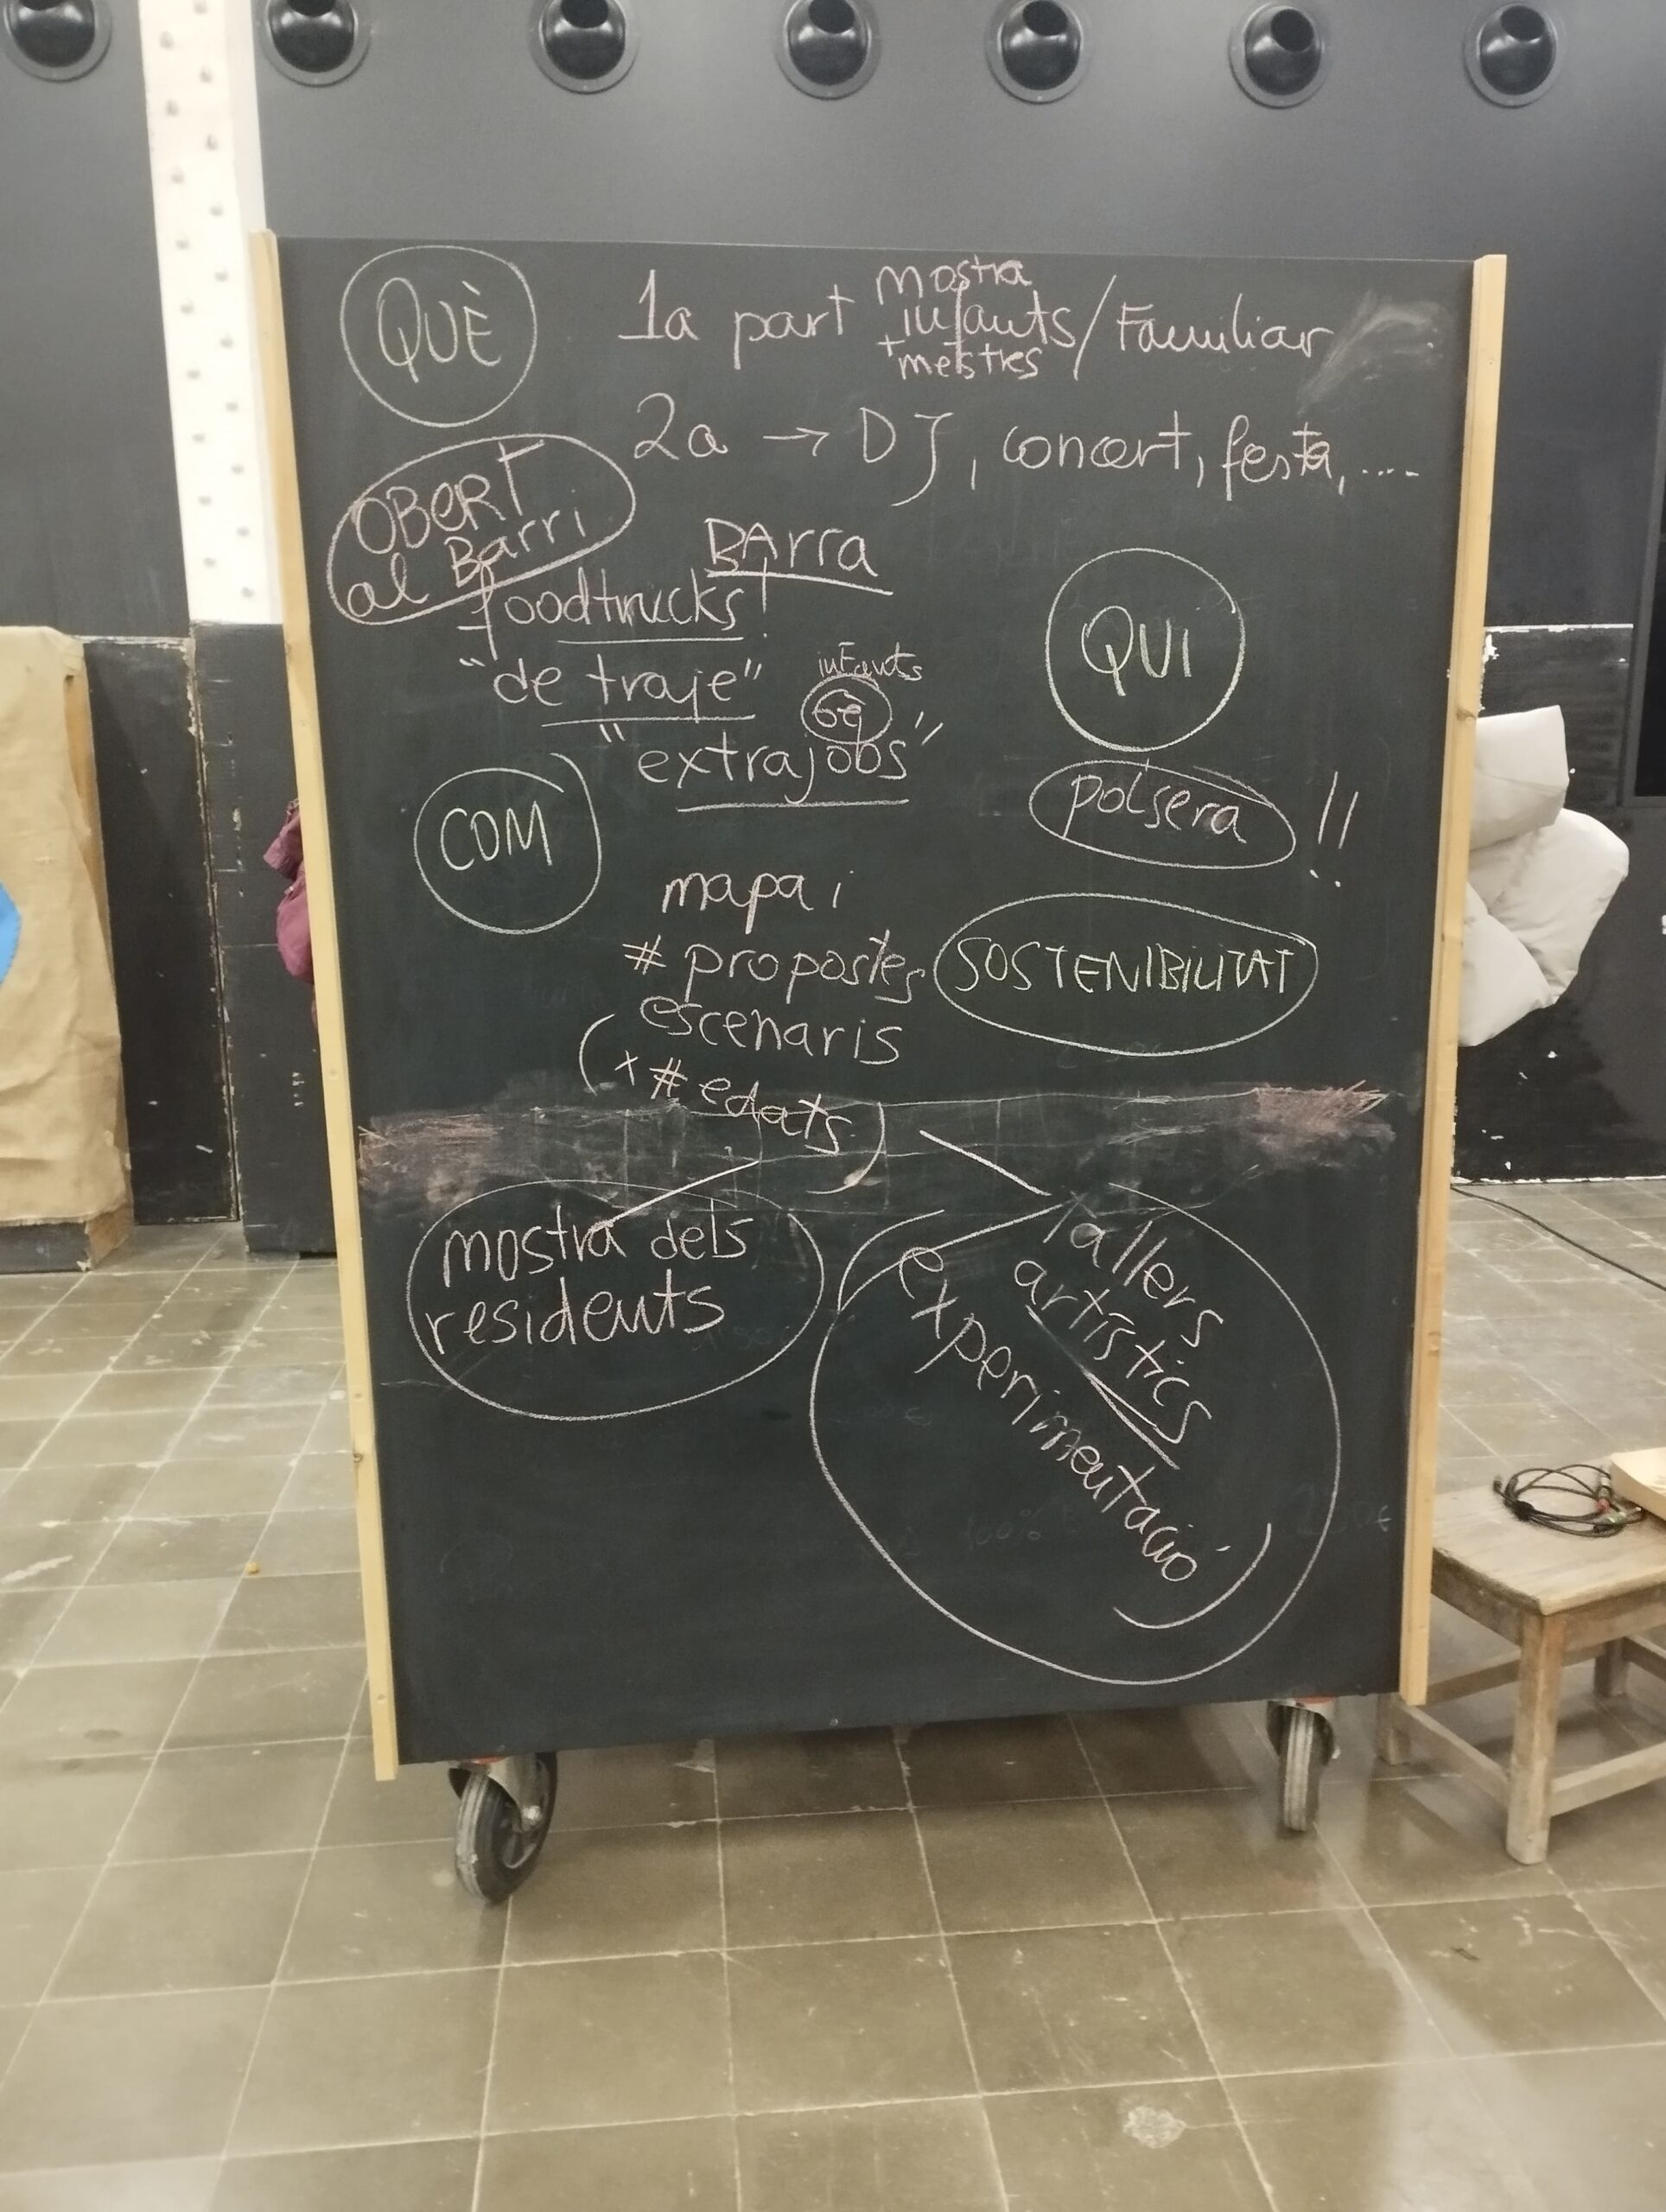 QUÈ
1a part mostra infants + mestres / Familiar
2a → DJ, concert, festa, ....
OBERT
al Barri
BArra
foodtrucks
"de traje"
infants
6è
"extrajobs"
QUI
polsera !!
COM
mapa i
# propostes
escenaris
(x # edats)
SOSTENIBILITAT
mostra dels
residents
Tallers
artístics
(experimentació)